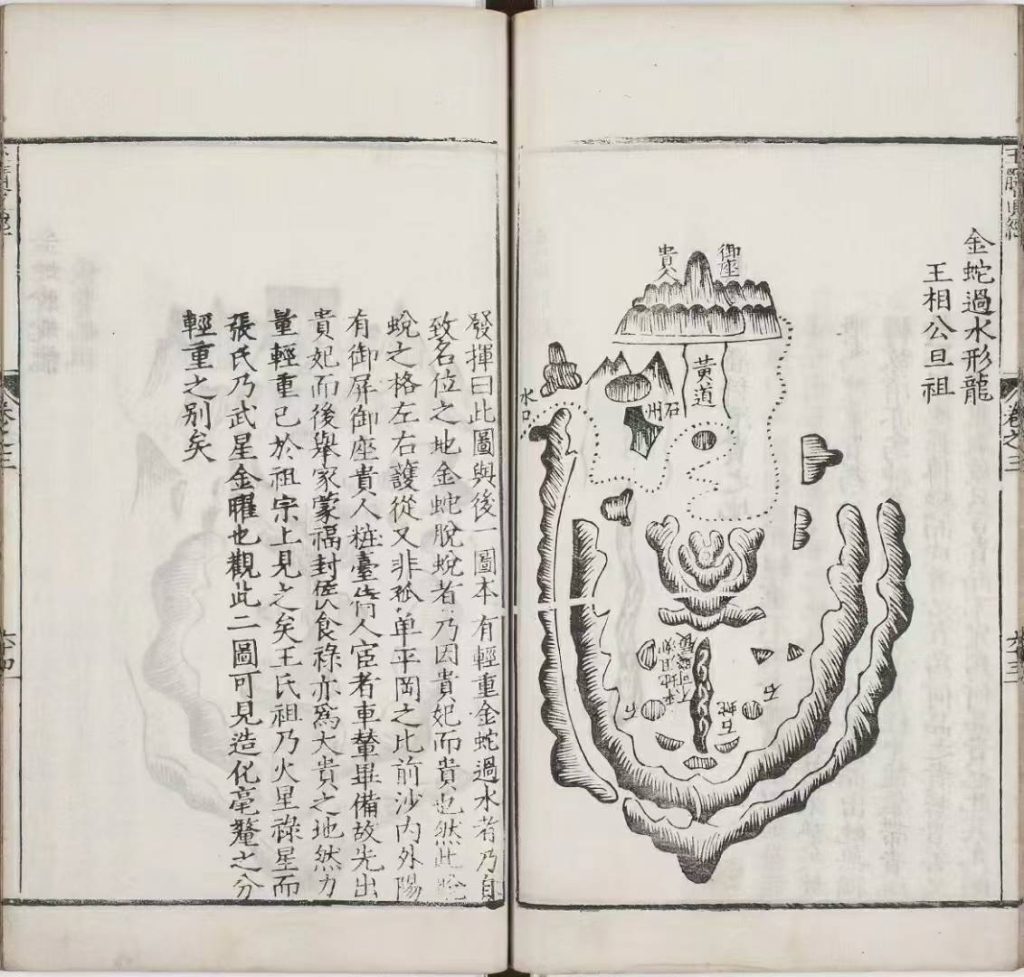 金蛇過水形龍
王相公旦祖
御座
貴人
黃道
石州
水口
石
石蛇
石
卷之三
六三
發揮曰此圖與後一圖本有輕重金蛇過水者乃自
致名位之地金蛇脫蛻者乃因貴妃而貴也然此脫
蛻之格左右護從又非孤单平岡之比前沙內外陽
有御屏御座貴人粧臺侍人宦者車輦畢備故先出
貴妃而後舉家蒙福封侯食祿亦爲大貴之地然力
量輕重已於祖宗上見之矣王氏祖乃火星祿星而
張氏乃武星金曜也觀此二圖可見造化毫釐之分
輕重之別矣
卷之三
六四